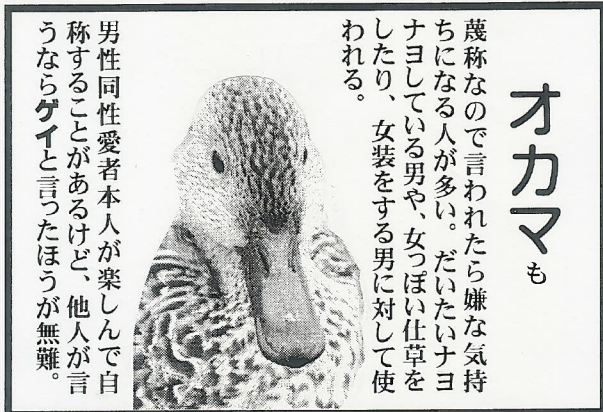 オカマも
蔑称なので言われたら嫌な気持
ちになる人が多い。だいたいナヨ
ナヨしている男や、女っぽい仕草を
したり、女装をする男に対して使
われる。
男性同性愛者本人が楽しんで自
称することがあるけど、他人が言
うならゲイと言ったほうが無難。